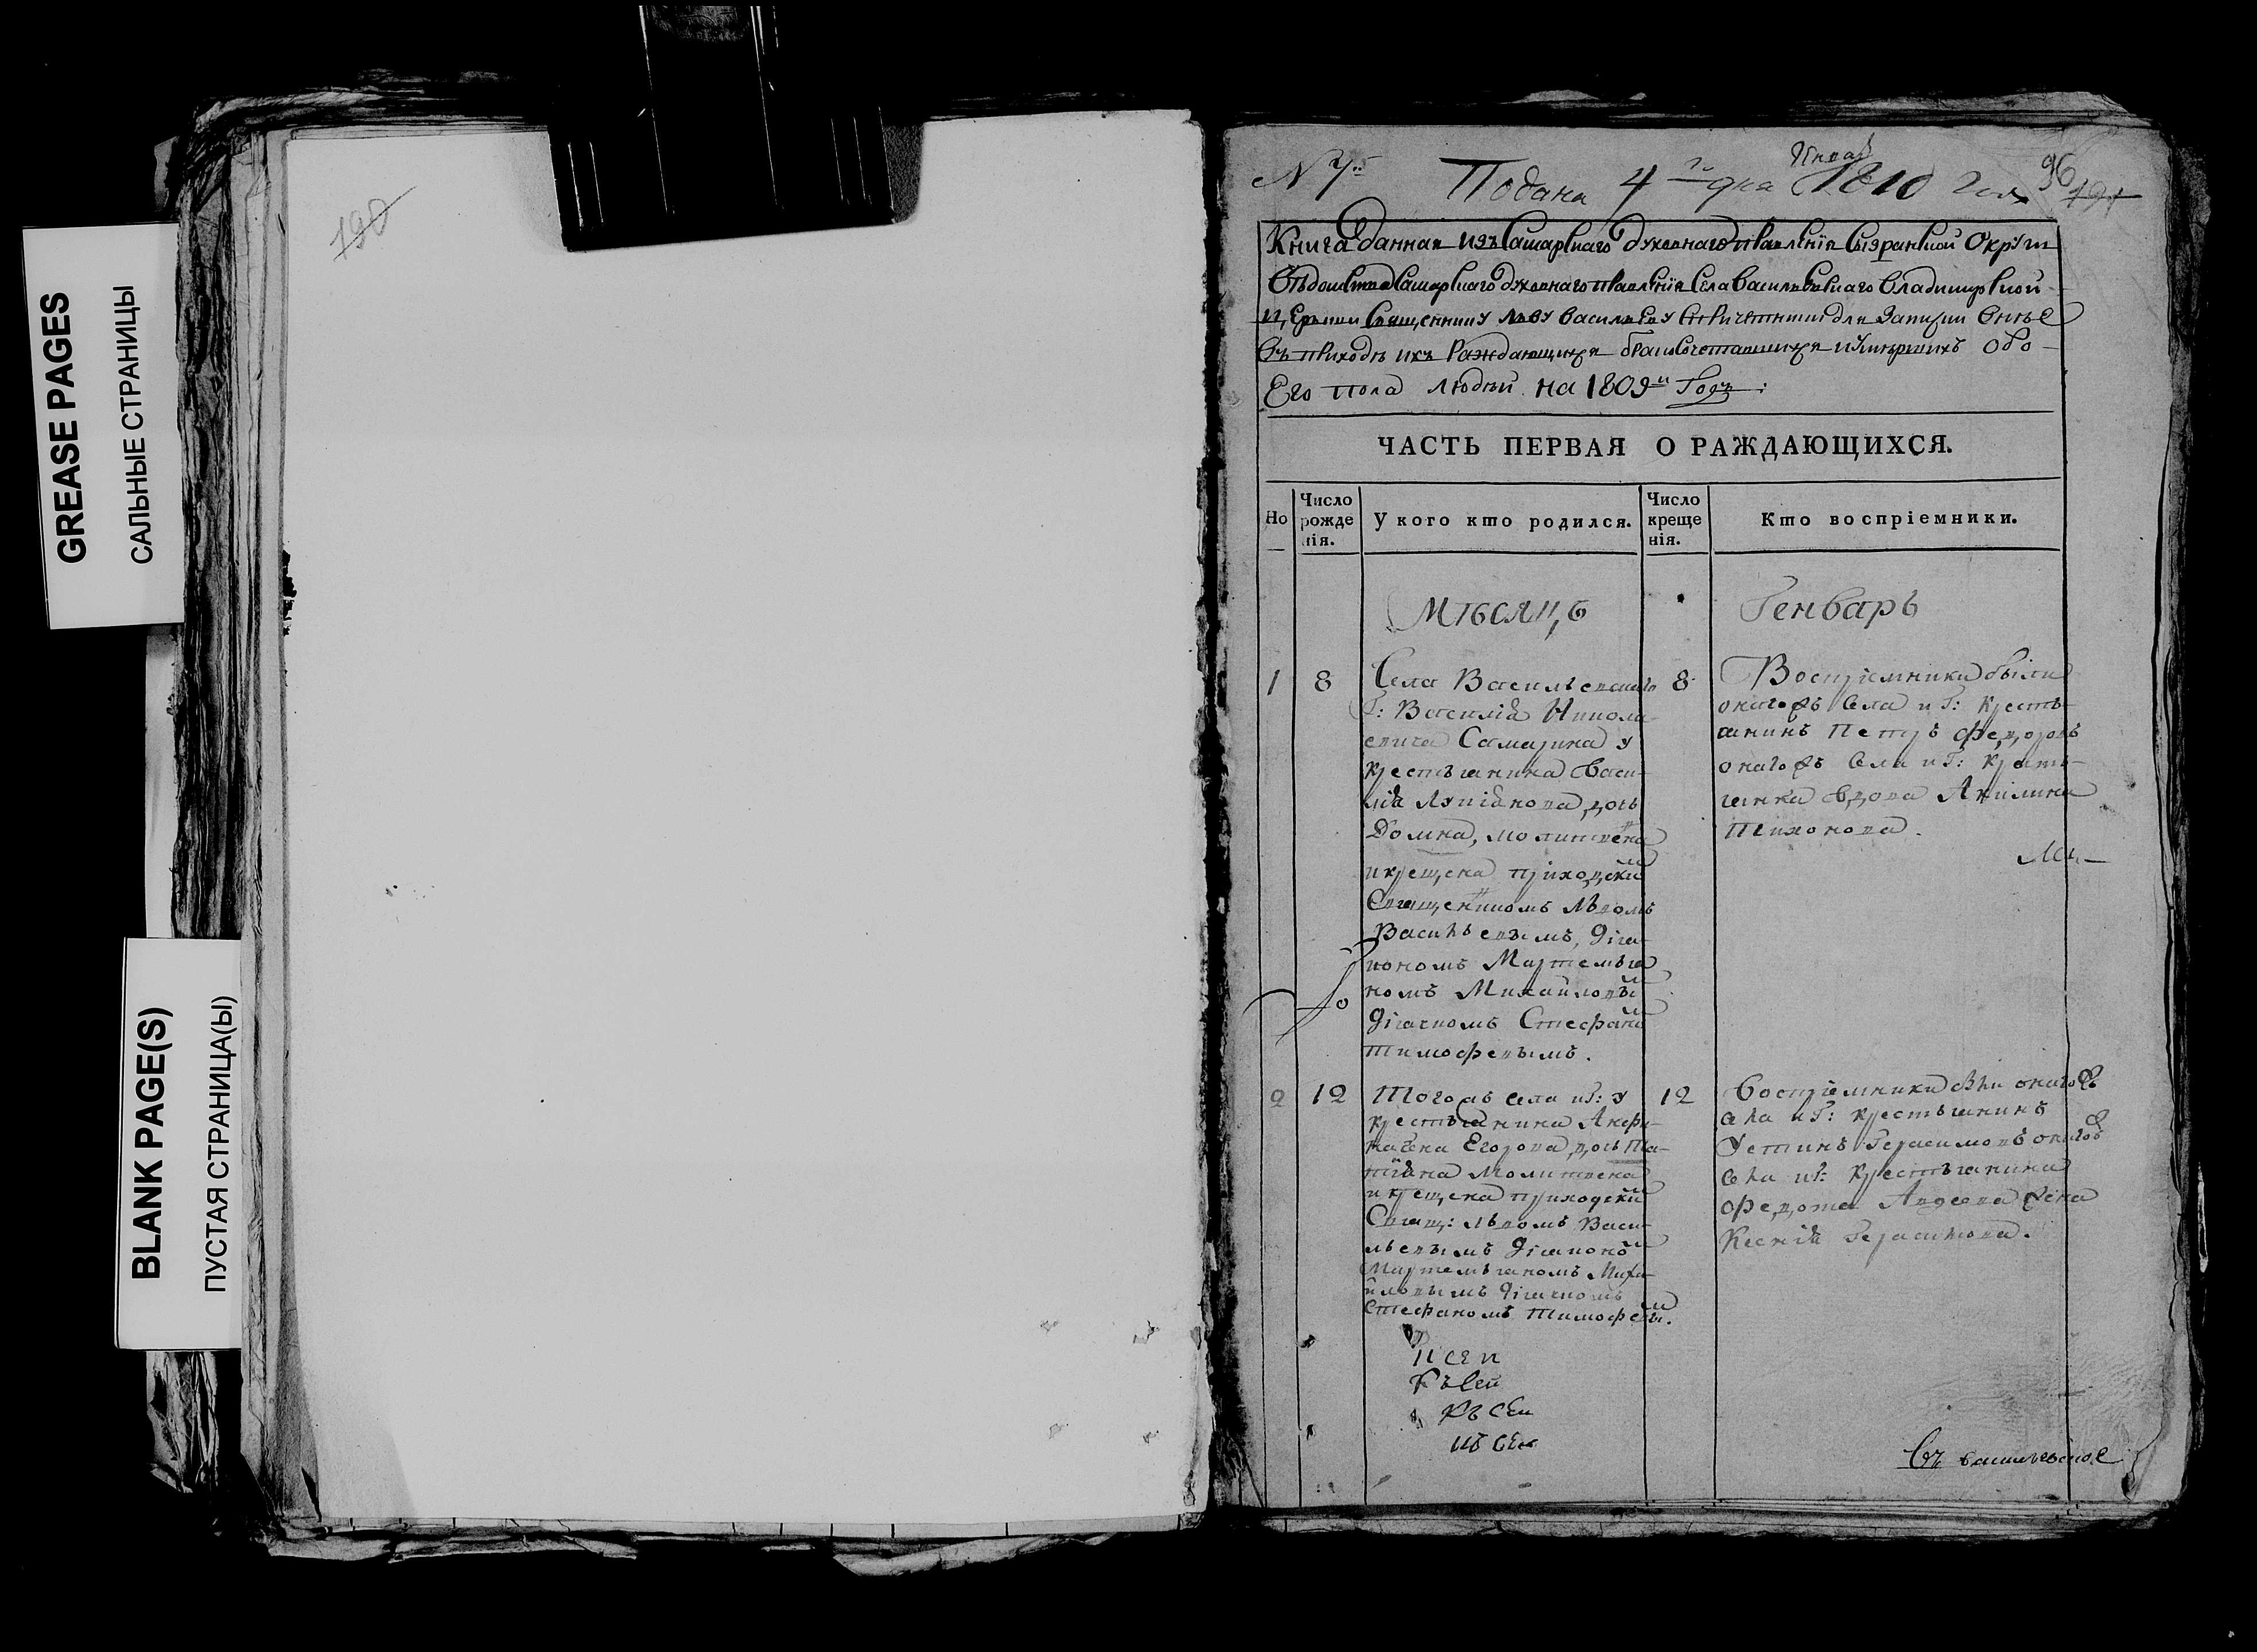 GREASE PAGES
САЛЬНЫЕ СТРАНИЦЫ
BLANK PAGE(S)
ПУСТАЯ СТРАНИЦА(Ы)
190
Подана 4 дня 1810 года
96
191
Книга данная изъ Самарскаго духовнаго правленія Сызранской округи
вѣдомства Самарскаго духовнаго правленія села Васильевскаго Владимирской
церкви священнику Льву Васильеву съ причетники для записки
въ приходѣ ихъ раждающихся бракосочетавшихся и умершихъ обо-
его пола людей на 1809й годъ:
ЧАСТЬ ПЕРВАЯ О РАЖДАЮЩИХСЯ.
Но
Число рожде нія.
У кого кто родился.
Число креще нія.
Кто воспріемники.
Мѣсяцъ
Генварь
1
8
Села Васильевскаго
Г: Василія Никола-
евича Самарина у
крестьянина Васи-
лія Лукіянова дочь
Домна, молитвена
и крещена приходским
Священникомъ Львомъ
Васильевымъ, діа-
кономъ Мартемья
номъ Михайловым
дьячкомъ Стефаном
Тимофевымъ.
8
Воспріемники были
онагожъ села и Г: кресть-
янинъ Петръ Федоровъ
онагожъ села и Г: кресть-
янка вдова Акилина
Тихонова.
2
12
Тогожъ села и Г: у
крестьянина
Егорова дочь Та-
тіяна молитвена
и крещена приходским
Свящ: Львомъ Васи-
льевымъ діаконом
Мартемьяномъ Миха-
йловымъ дьячкомъ
Стефаномъ Тимофевым.
12
Воспріемники онагожъ
села и Г: крестьянинъ
Устинъ Герасимовъ онагожъ
села и Г: крестьянина
Федота Авдеева жена
Ксенія Герасимова.
Въ васильевское